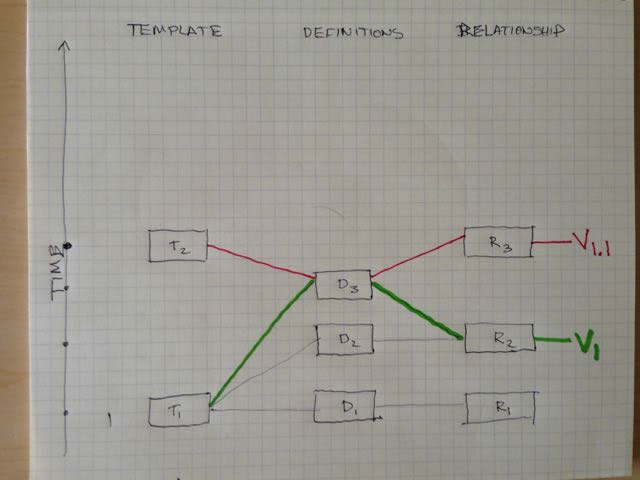 TEMPLATE DEFINITIONS RELATIONSHIP
TIME
T2 R3 V1.1
D3
D2 R2 V1
T1 D1 R1